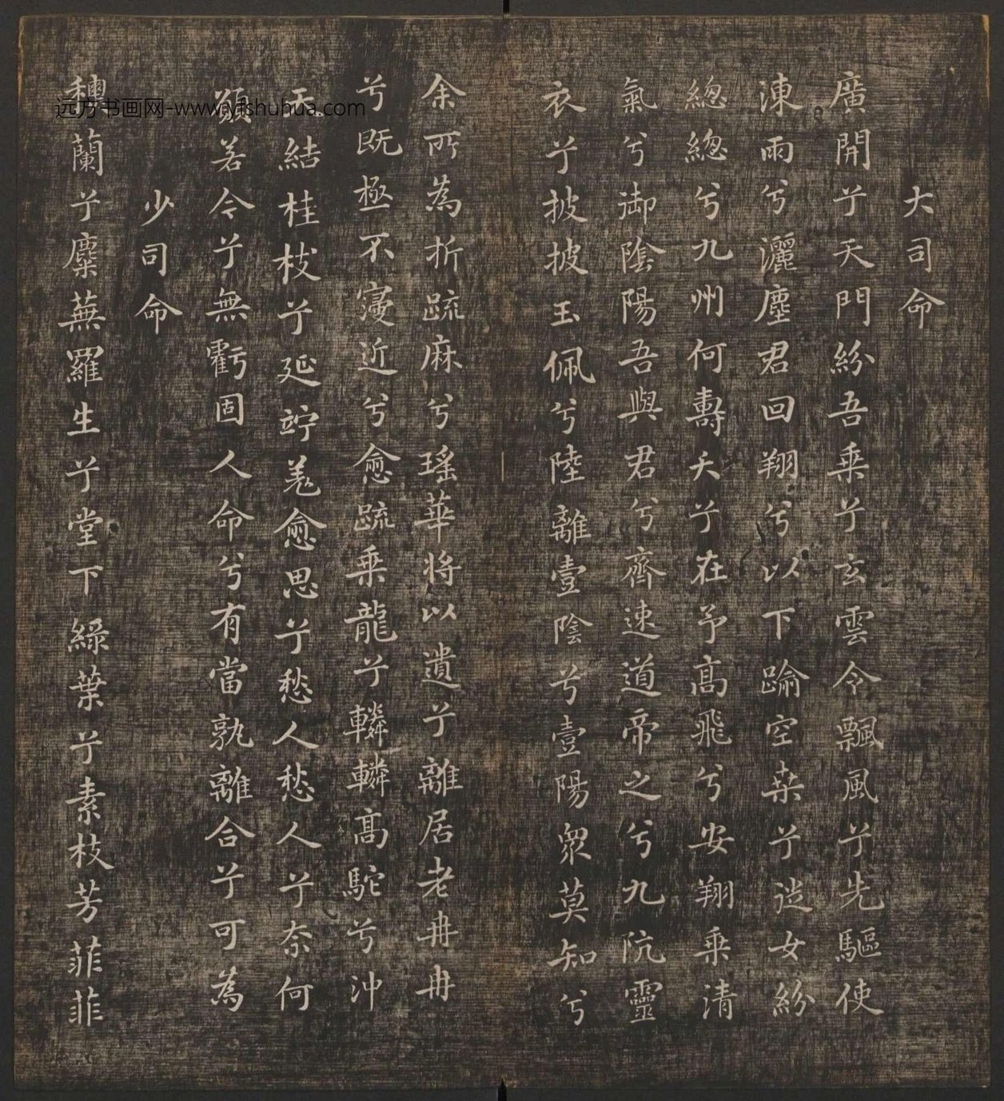 大司命
廣開兮天門紛吾乘兮玄雲令飄風兮先驅使
涷雨兮灑塵君回翔兮以下踰空桒兮從女紛
總總兮九州何壽夭兮在予高飛兮安翔乘清
氣兮御陰陽吾與君兮齊速道帝之兮九阬靈
衣兮披披玉佩兮陸離壹陰兮壹陽衆莫知兮
余所為折疏麻兮瑤華將以遺兮離居老冉冉
兮既極不寖近兮愈疏乘龍兮轔轔高駝兮沖
天結桂枝兮延竚羌愈思兮愁人愁人兮奈何
願若今兮無虧固人命兮有當孰離合兮可為
少司命
穗蘭兮麋蕪羅生兮堂下綠葉兮素枝芳菲菲
远方书画网-www.yfshuhua.com